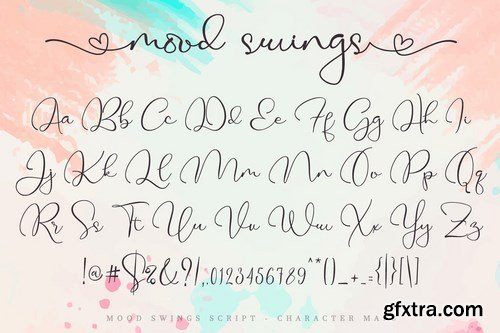 mood swings
Aa Bb Cc Dd Ee Ff Gg Hh Ii
Jj Kk Ll Mm Nn Oo Pp Qq
Rr Ss Tt Uu Vv Ww Xx Yy Zz
!@#$%&?/,.0123456789^*()_+-={|}[\]
MOOD SWINGS SCRIPT - CHARACTER MA
gfxtra.com